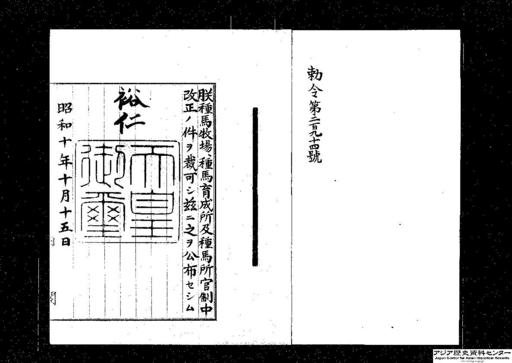 勅令第二百九十四號
朕種馬牧場種馬育成所及種馬所官制中
改正ノ件ヲ裁可シ茲ニ之ヲ公布セシム
裕仁
天皇御璽
昭和十年十月十五日
アジア歴史資料センター
Japan Center for Asian Historical Records